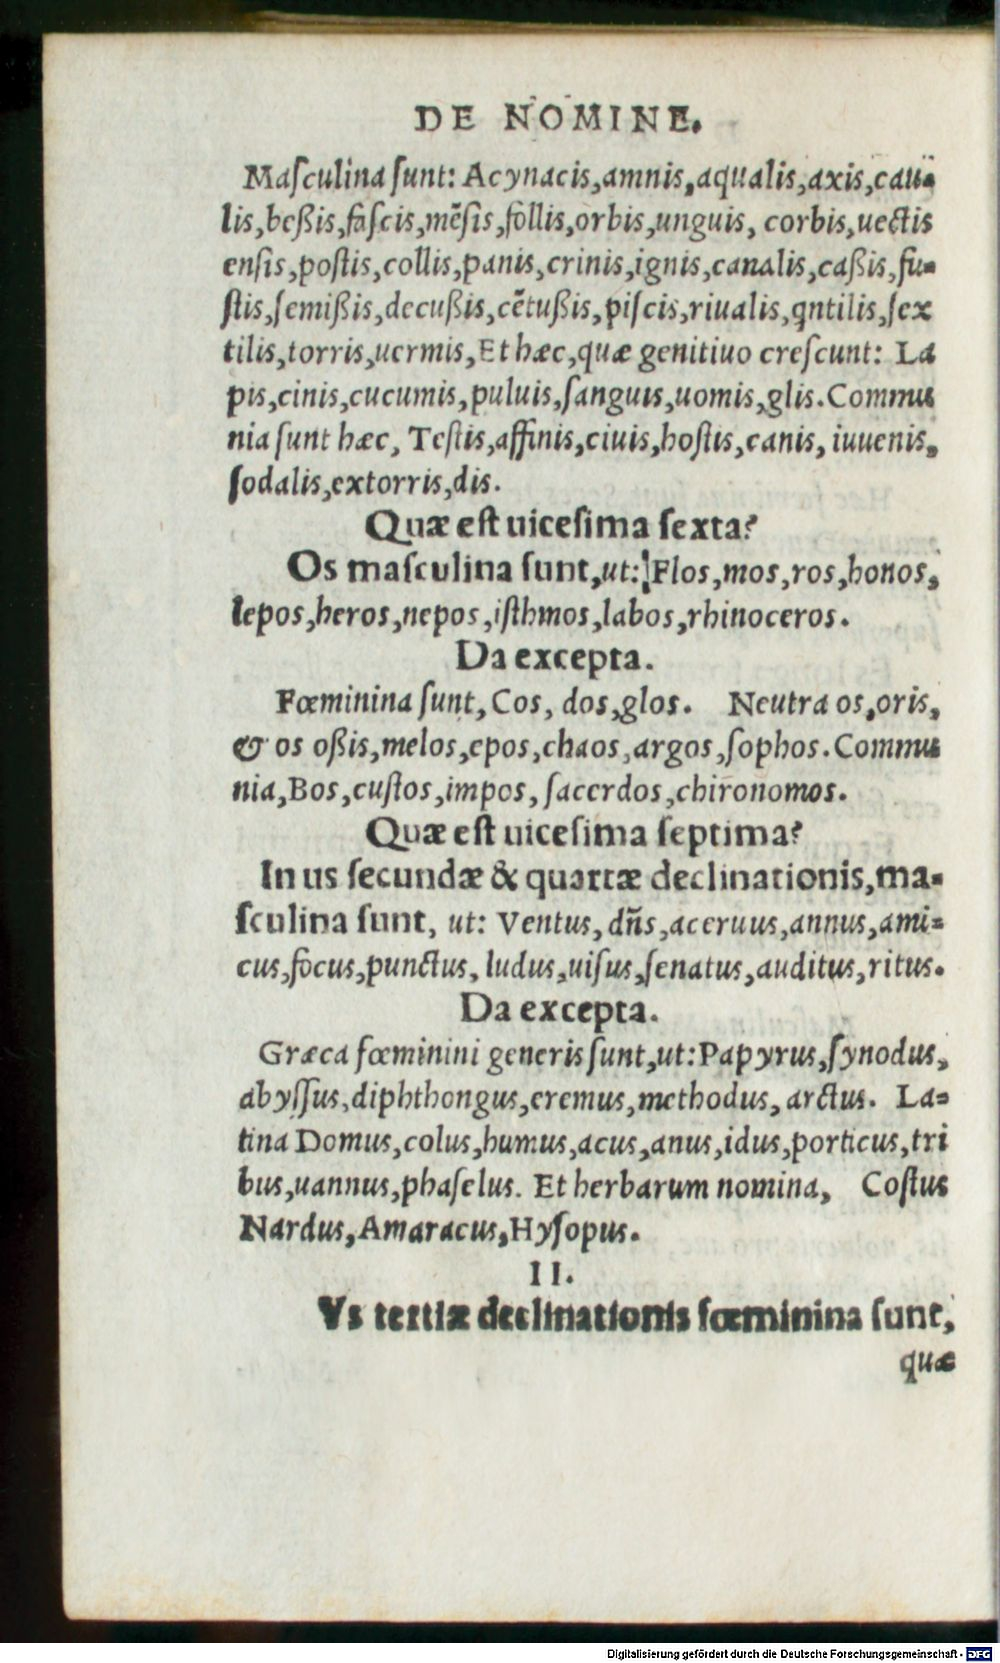 DE NOMINE.
Maſculina ſunt: Acynacis, amnis, aqualis, axis, cau-
lis, beßis, faſcis, mēſis, follis, orbis, unguis, corbis, uectis
enſis, poſtis, collis, panis, crinis, ignis, canalis, caßis, fu-
ſtis, ſemißis, decußis, cētußis, piſcis, riualis, qntilis, ſex
tilis, torris, uermis, Et hæc, quæ genitiuo creſcunt: La
pis, cinis, cucumis, puluis, ſanguis, uomis, glis. Commu
nia ſunt hæc, Teſtis, affinis, ciuis, hoſtis, canis, iuuenis,
ſodalis, extorris, dis.
Quæ eſt uiceſima ſexta?
Os maſculina ſunt, ut: Flos, mos, ros, honos,
lepos, heros, nepos, iſthmos, labos, rhinoceros.
Da excepta.
Fœminina ſunt, Cos, dos, glos. Neutra os, oris,
& os oßis, melos, epos, chaos, argos, ſophos. Commu
nia, Bos, cuſtos, impos, ſacerdos, chironomos.
Quæ eſt uiceſima ſeptima?
In us ſecundæ & quartæ declinationis, ma-
ſculina ſunt, ut: Ventus, dn̄s, aceruus, annus, ami-
cus, focus, punctus, ludus, uiſus, ſenatus, auditus, ritus.
Da excepta.
Græca fœminini generis ſunt, ut: Papyrus, ſynodus,
abyſſus, diphthongus, eremus, methodus, arctus. La-
tina Domus, colus, humus, acus, anus, idus, porticus, tri
bus, uannus, phaſelus. Et herbarum nomina, Coſtus
Nardus, Amaracus, Hyſopus.
II.
Vs tertiæ declinationis fœminina ſunt,
quæ
Digitalisierung gefördert durch die Deutsche Forschungsgemeinschaft - DFG